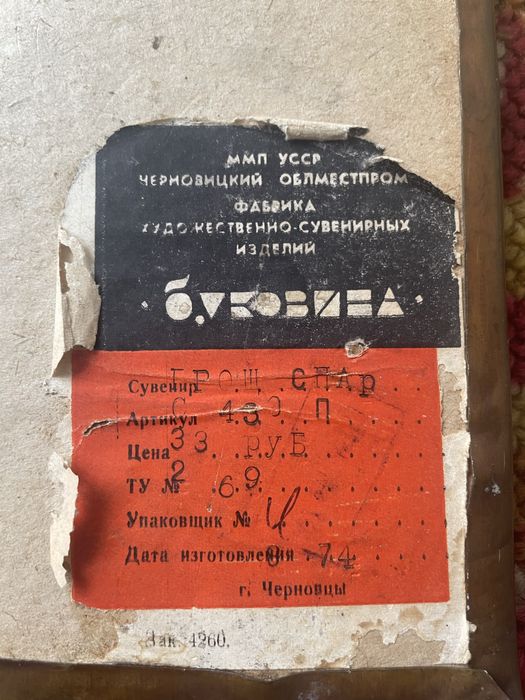 ММП УССР
ЧЕРНОВИЦКИЙ ОБЛМЕСТПРОМ
ФАБРИКА
ХУДОЖЕСТВЕННО-СУВЕНИРНЫХ
ИЗДЕЛИЙ
· БУКОВИНА ·
Сувенир ГРОЩ СПАР
Артикул С 430 П
Цена 33 РУБ
ТУ № 2 69
Упаковщик №
Дата изготовления 74
г. Черновцы
Зак. 4260.